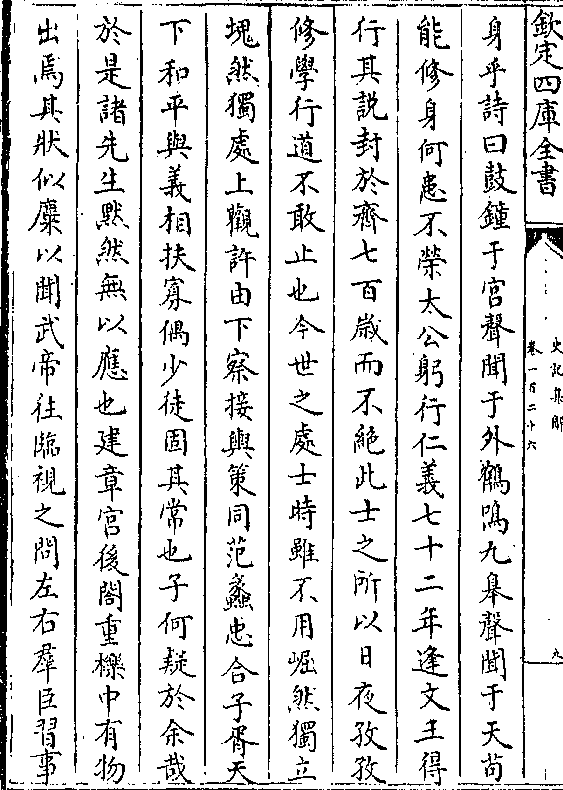 欽定四庫全書
史記集解
卷一百二十六
九
身乎詩曰鼓鐘于宫聲聞于外鶴鳴九臯聲聞于天茍
能修身何患不榮太公躬行仁義七十二年逢文王得
行其説封於齊七百歲而不絶此士之所以日夜孜孜
修學行道不敢止也今世之處士時雖不用崛然獨立
塊然獨處上觀許由下察接輿策同范蠡忠合子胥天
下和平與義相扶寡偶少徒固其常也子何疑於余哉
於是諸先生默然無以應也建章宫後閤重櫟中有物
出焉其狀似麋以聞武帝往臨視之問左右羣臣習事